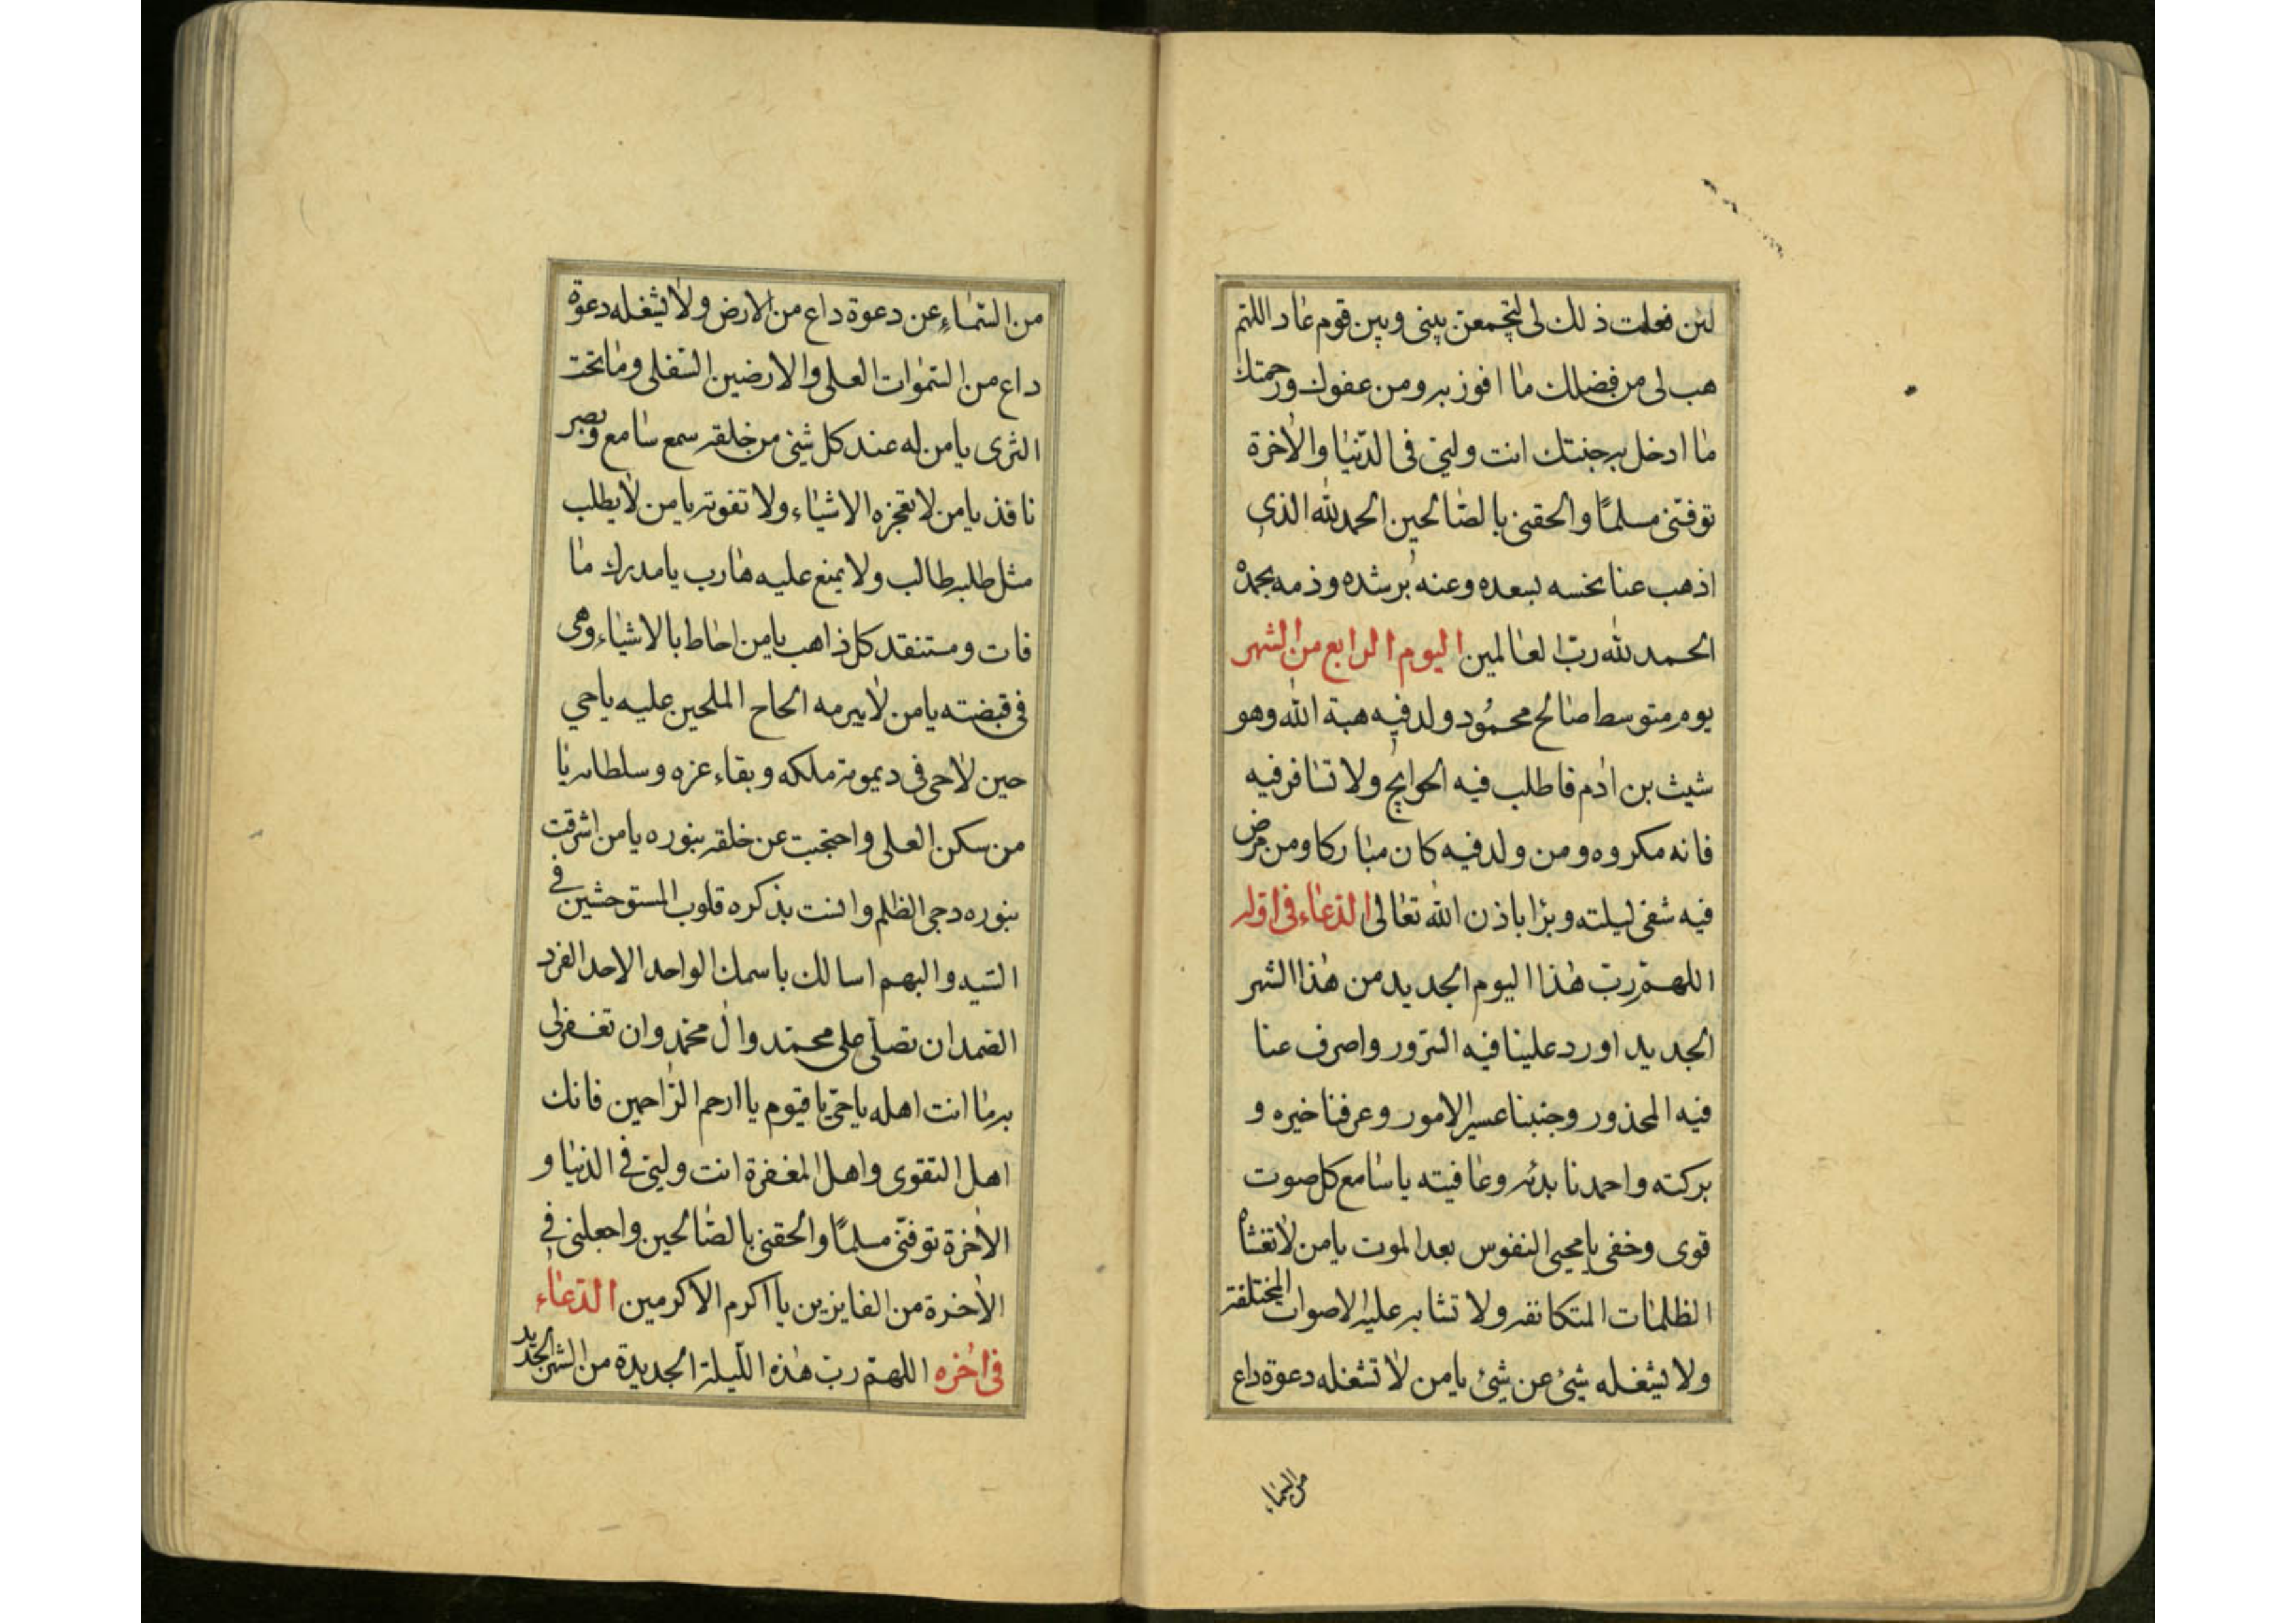 لئن فعلت ذلك لى لتجمعن بينى وبين قوم عاد اللهم
هب لى من فضلك ما افوز به ومن عفوك ورحمتك
ما ادخل به جنتك انت وليى فى الدّنيا والاخرة
توفّنى مسلمًا والحقنى بالصّالحين الحمد لله الذى
اذهب عنا نحسه بسعده وعنه برشده وذمه بحمده
الحمد لله ربّ العالمين اليوم الرابع من الشهر
يوم متوسط صالح محمود ولد فيه هبة الله وهو
شيث بن ادم فاطلب فيه الحوايج ولا تسافر فيه
فانه مكروه ومن ولد فيه كان مباركا ومن مرض
فيه شفى ليلته وبرا باذن الله تعالى الدّعاء فى اوله
اللهمّ ربّ هذا اليوم الجديد من هذا الشهر
الجديد اورد علينا فيه السّرور واصرف عنا
فيه المحذور وجنبنا عسير الامور وعرفنا خيره و
بركته واحمدنا بدئه وعافيته يا سامع كل صوت
قوى وخفى يا محيى النفوس بعد الموت يا من لا تغشاه
الظلمات المتكاثفه ولا تشابه عليه الاصوات المختلفة
ولا يشغله شئ عن شئ يا من لا تشغله دعوة داع
من السّماء
من السّماء عن دعوة داع من الارض ولا يشغله دعوة
داع من السّموات العلى والارضين السّفلى وما تحت
الثرى يا من له عند كل شئ من خلقه سمع سامع وبصر
نافذ يا من لا تعجزه الاشياء ولا تفوته يا من لا يطلب
مثل طلبه طالب ولا يمنع عليه هارب يا مدرك ما
فات ومستنقد كل ذاهب يا من احاط بالاشياء وهى
فى قبضته يا من لا يبرمه الحاح الملحين عليه يا حي
حين لا حى فى ديمومة ملكه وبقاء عزه وسلطانه يا
من سكن العلى واحتجبت عن خلقه بنوره يا من اشرقت
بنوره دجى الظلم وانست بذكره قلوب المستوحشين فى
البيد والبهم اسالك باسمك الواحد الاحد الفرد
الصّمد ان تصلّى على محمّد وال محمّد وان تغفر لى
برما انت اهله يا حىّ يا قيوم يا ارحم الرّاحمين فانك
اهل التقوى واهل المغفرة انت وليى فى الدّنيا و
الاخرة توفّنى مسلمًا والحقنى بالصّالحين واجعلنى فى
الاخرة من الفايزين يا اكرم الاكرمين الدّعاء
فى اخره اللهمّ ربّ هذه اللّيلة الجديدة من الشهر الجديد